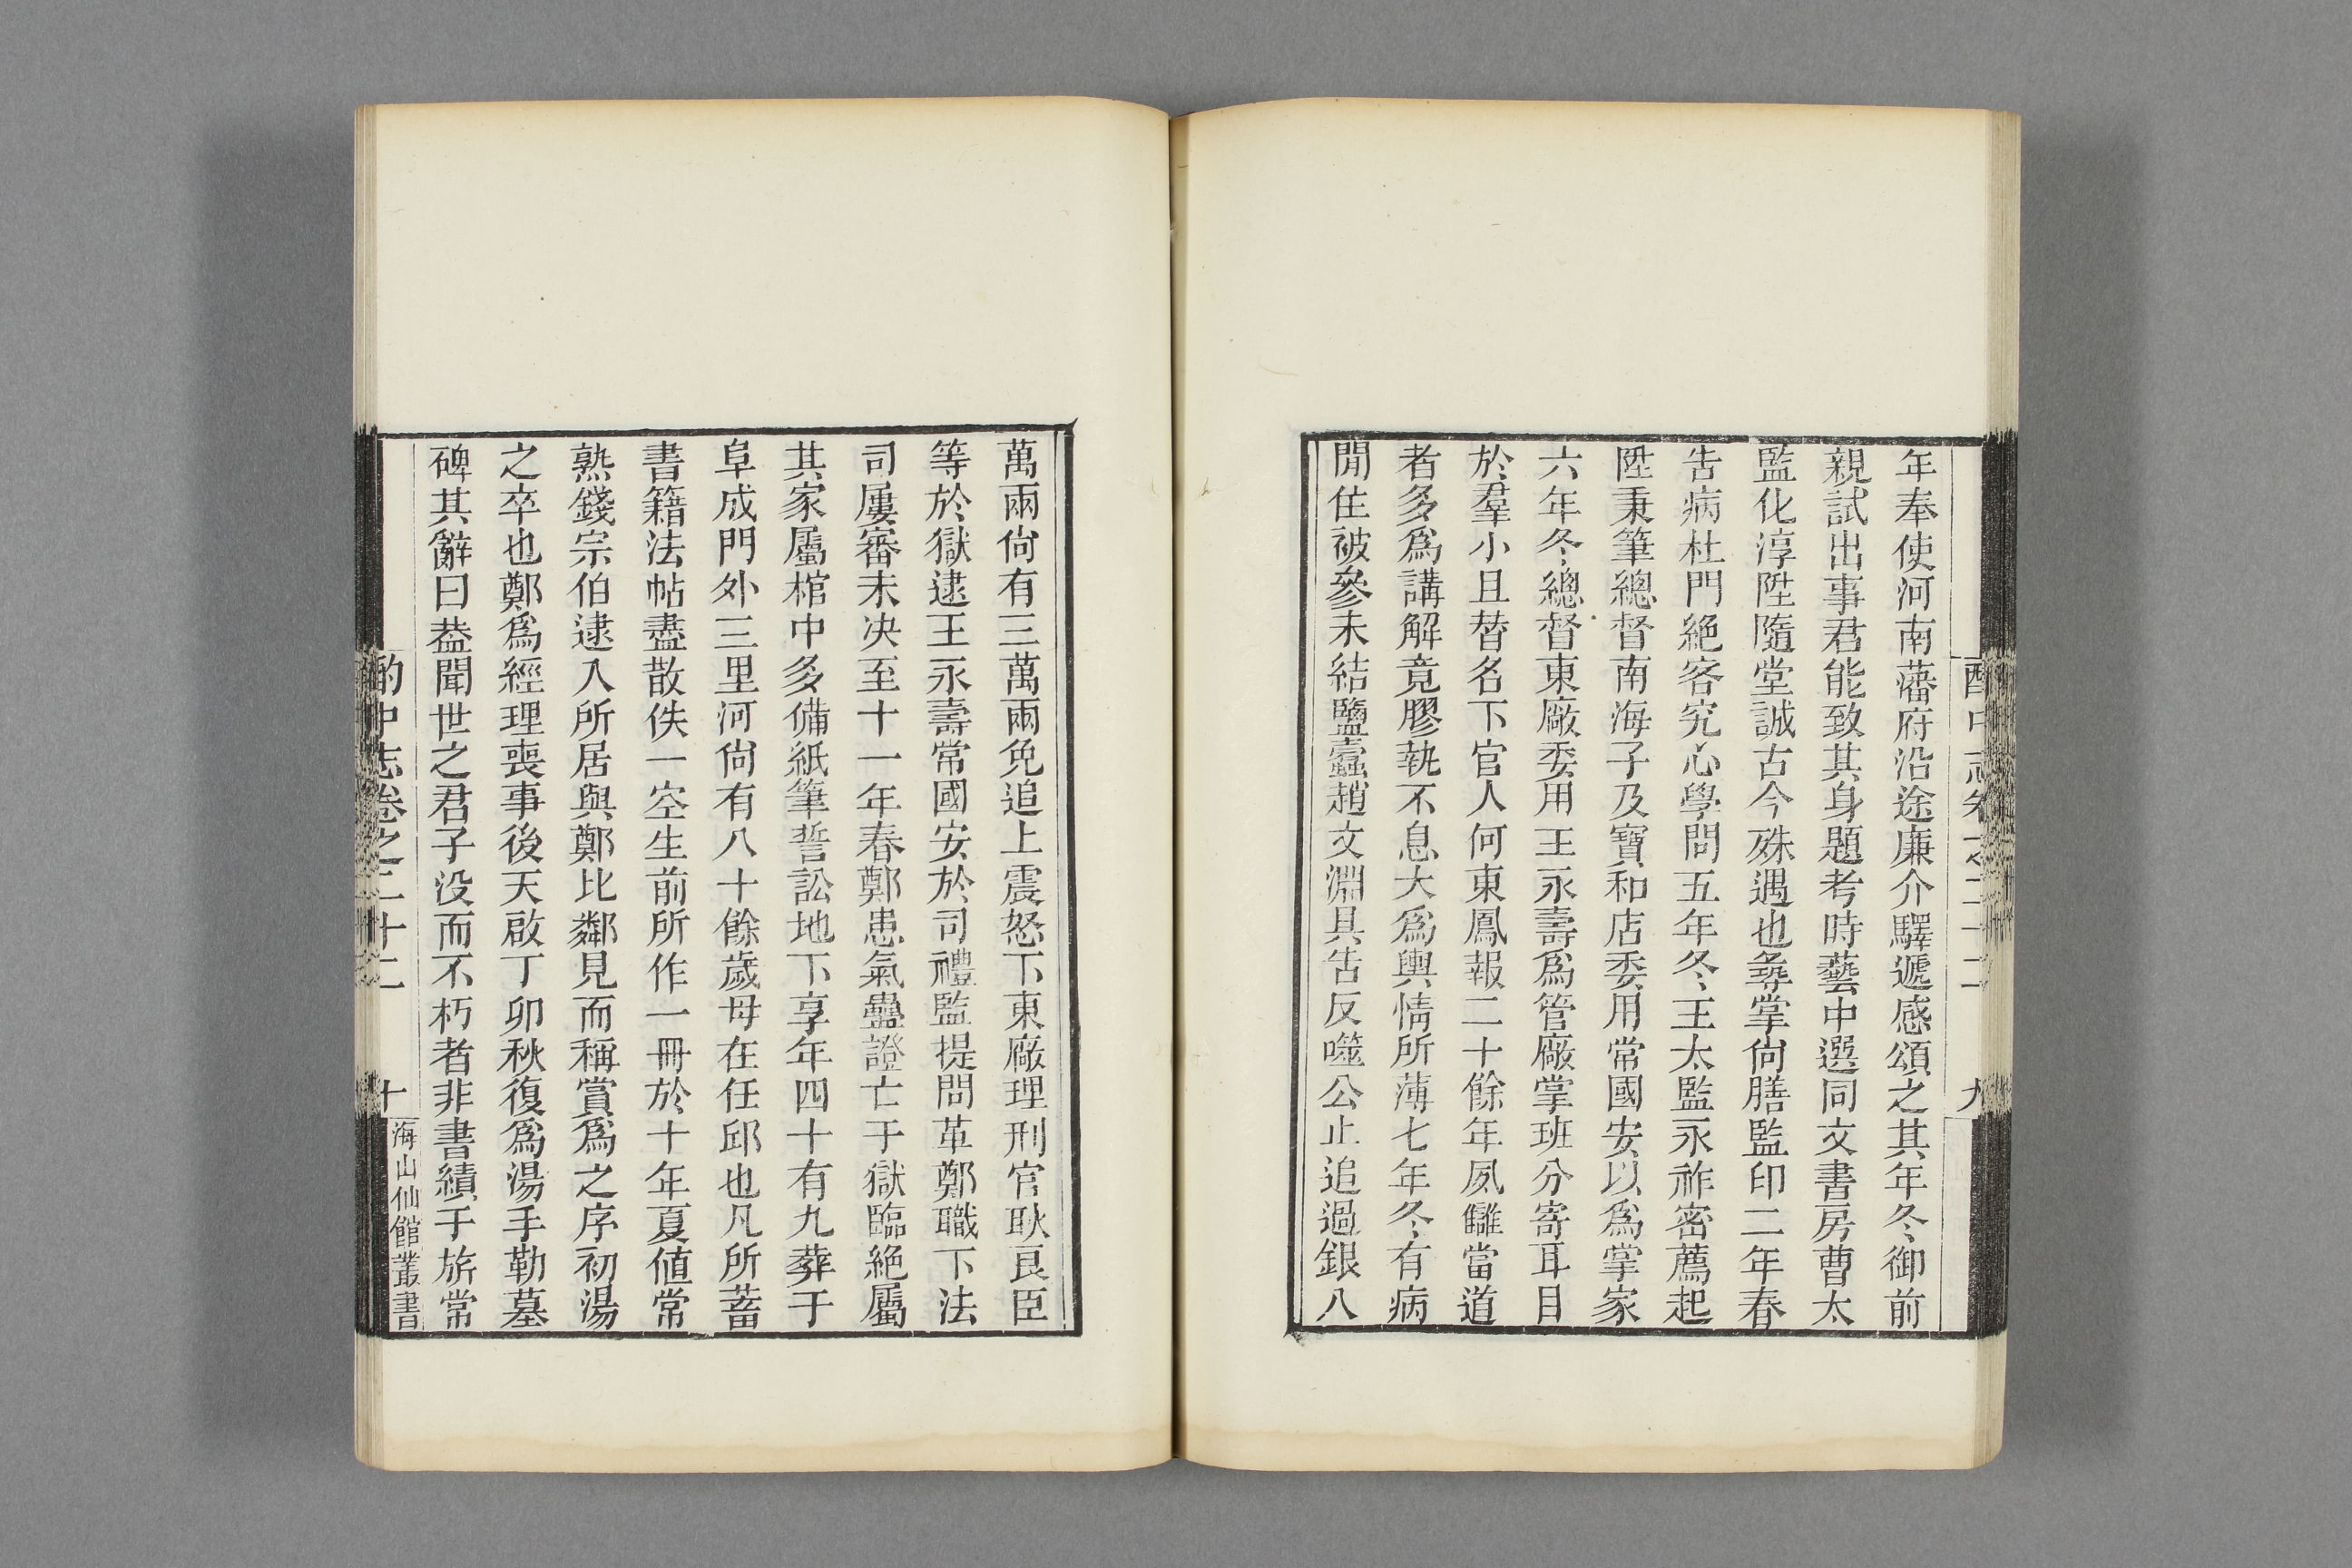 年奉使河南藩府沿途廉介驛遞感頌之其年冬御前
親試出事君能致其身題考時藝中選同文書房曹太
監化淳陞隨堂誠古今殊遇也尋掌尙膳監印二年春
告病杜門絶客究心學問五年冬王太監永祚密薦起
陞秉筆總督南海子及寶和店委用常國安以爲掌家
六年冬總督東廠委用王永壽爲管廠掌班分寄耳目
於羣小且替名下官人何東鳳報二十餘年夙讎當道
者多爲講解竟膠執不息大爲輿情所薄七年冬有病
閒住被參未結鹽蠹趙文淵具告反噬公止追過銀八
萬兩尙有三萬兩免追上震怒下東廠理刑官耿良臣
等於獄逮王永壽常國安於司禮監提問革鄭職下法
司屢審未決至十一年春鄭患氣蠱證亡于獄臨絶屬
其家屬棺中多備紙筆誓訟地下享年四十有九葬于
阜成門外三里河尙有八十餘歲母在任邱也凡所蓄
書籍法帖盡散佚一空生前所作一冊於十年夏値常
熟錢宗伯逮入所居與鄭比鄰見而稱賞爲之序初湯
之卒也鄭爲經理喪事後天啟丁卯秋復爲湯手勒墓
碑其辭曰葢聞世之君子没而不朽者非書績于旂常
酌中志卷之二十二
十
海山仙館叢書